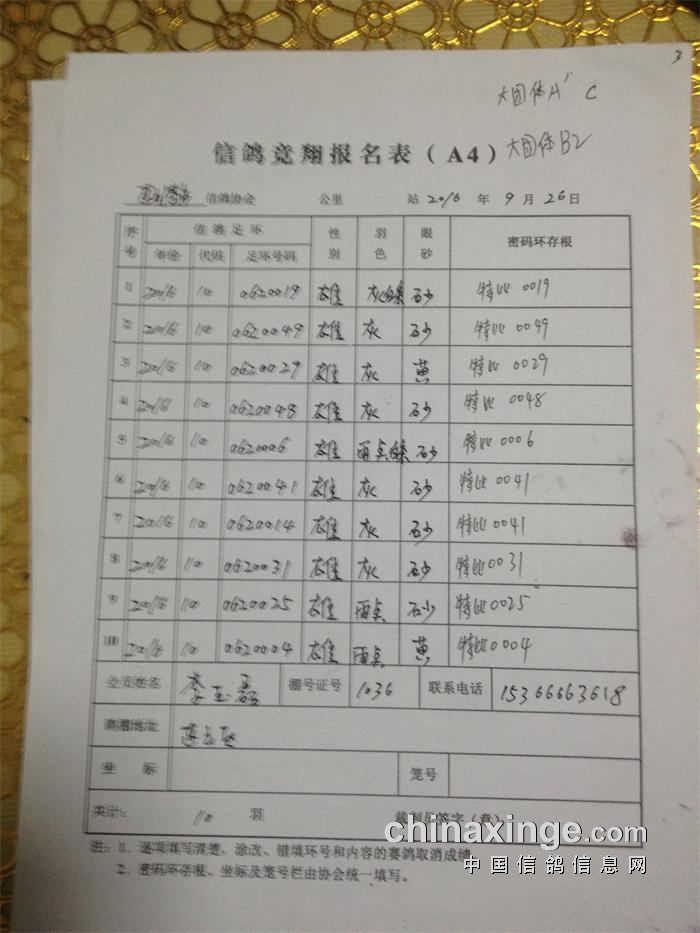 3
大团体A' C
信鸽竞翔报名表（A4） 大团体B2
信鸽协会 公里 站 2016 年 9 月 26 日
信鸽足环 性别 羽色 眼砂 密码环存根
代码 足环号码
1 2016 10 0620019 雄 灰 砂 特比 0019
2 2016 10 0620049 雄 灰 砂 特比 0049
3 2016 10 0620029 雄 灰 黄 特比 0029
4 2016 10 0620048 雄 灰 砂 特比 0048
5 2016 10 0620006 雄 雨点 砂 特比 0006
6 2016 10 0620041 雄 灰 砂 特比 0041
7 2016 10 0620014 雄 灰 砂 特比 0041
8 2016 10 0620031 雄 灰 砂 特比 0031
9 2016 10 0620025 雄 雨点 砂 特比 0025
10 2016 10 0620004 雄 雨点 黄 特比 0004
会员姓名 李玉磊 棚号证号 1036 联系电话 15366663618
鸽棚地址
坐标 笼号
共计： 10 羽 裁判员签字（章）
注：1、逐项填写清楚、涂改、错填环号和内容的赛鸽取消成绩。
2、密码环存根、坐标及笼号栏由协会统一填写。
chinaxinge.com
中国信鸽信息网